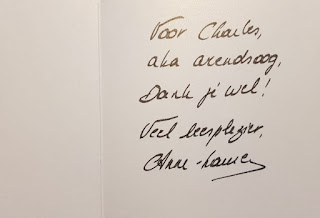 Voor Charles,
aka arendsoog,
Dank je wel!
Veel leesplezier,
Anne-